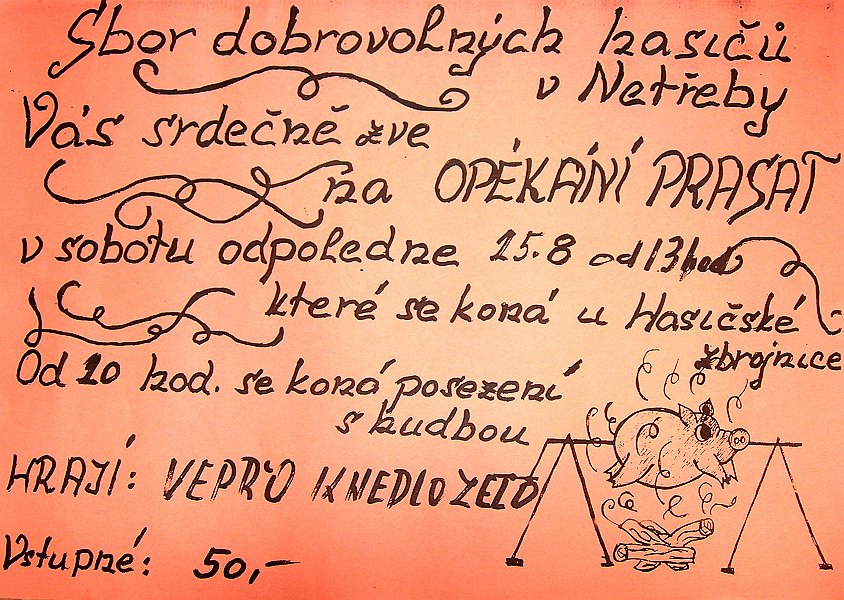 Sbor dobrovolných hasičů
v Netřeby
Vás srdečně zve
na OPÉKÁNÍ PRASAT
v sobotu odpoledne 15.8 od 13 hod
které se koná u Hasičské
zbrojnice
Od 20 hod. se koná posezení
s hudbou
HRAJÍ: VEPŘO KNEDLO ZELO
Vstupné: 50,-